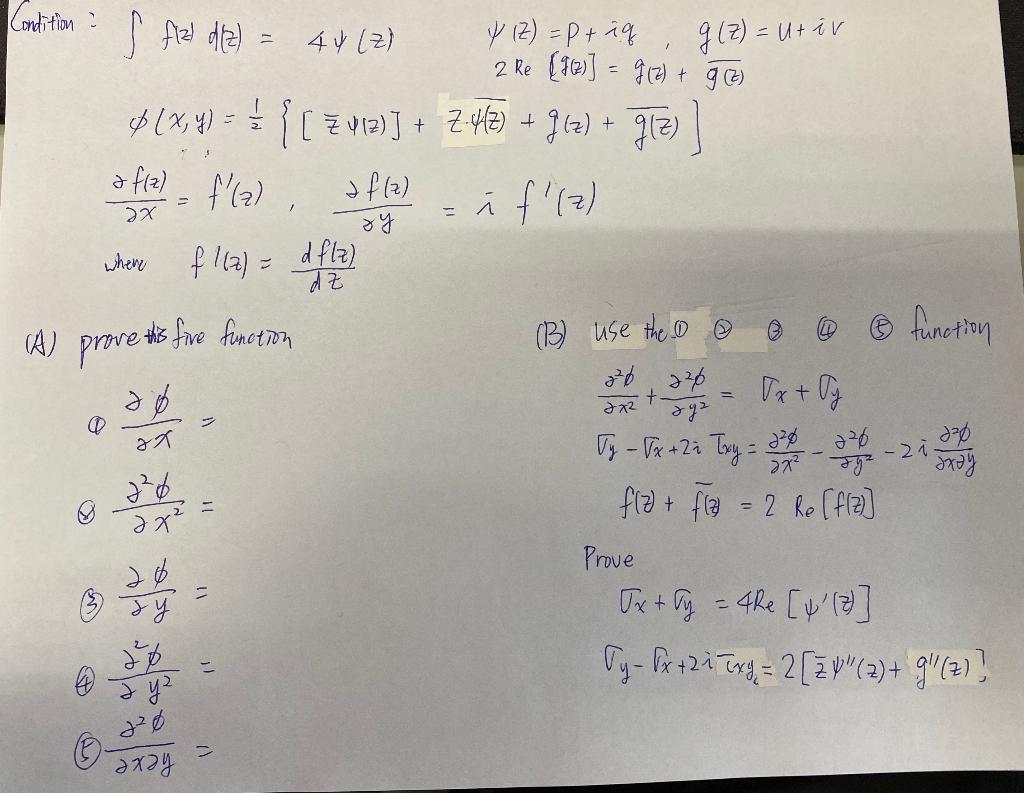 Condition : ∫ f(z) d(z) = 4ψ(z)   ψ(z) = p + iq , g(z) = u + iv
2 Re [g(z)] = g(z) + \overline{g(z)}
φ(x,y) = 1/2 { [ z̄ ψ(z)] + z·\overline{ψ(z)} + g(z) + \overline{g(z)} ]
∂f(z)/∂x = f'(z) , ∂f(z)/∂y = i f'(z)
where f'(z) = df(z)/dz
(A) prove this five function
① ∂φ/∂x =
② ∂²φ/∂x² =
③ ∂φ/∂y =
④ ∂²φ/∂y² =
⑤ ∂²φ/∂x∂y =
(B) use the ① ② ③ ④ ⑤ function
∂²φ/∂x² + ∂²φ/∂y² = σx + σy
σy - σx + 2i τxy = ∂²φ/∂x² - ∂²φ/∂y² - 2i ∂²φ/∂x∂y
f(z) + \overline{f(z)} = 2 Re [f(z)]
Prove
σx + σy = 4Re [ψ'(z)]
σy - σx + 2i τxy = 2 [z̄ ψ''(z) + g''(z)]